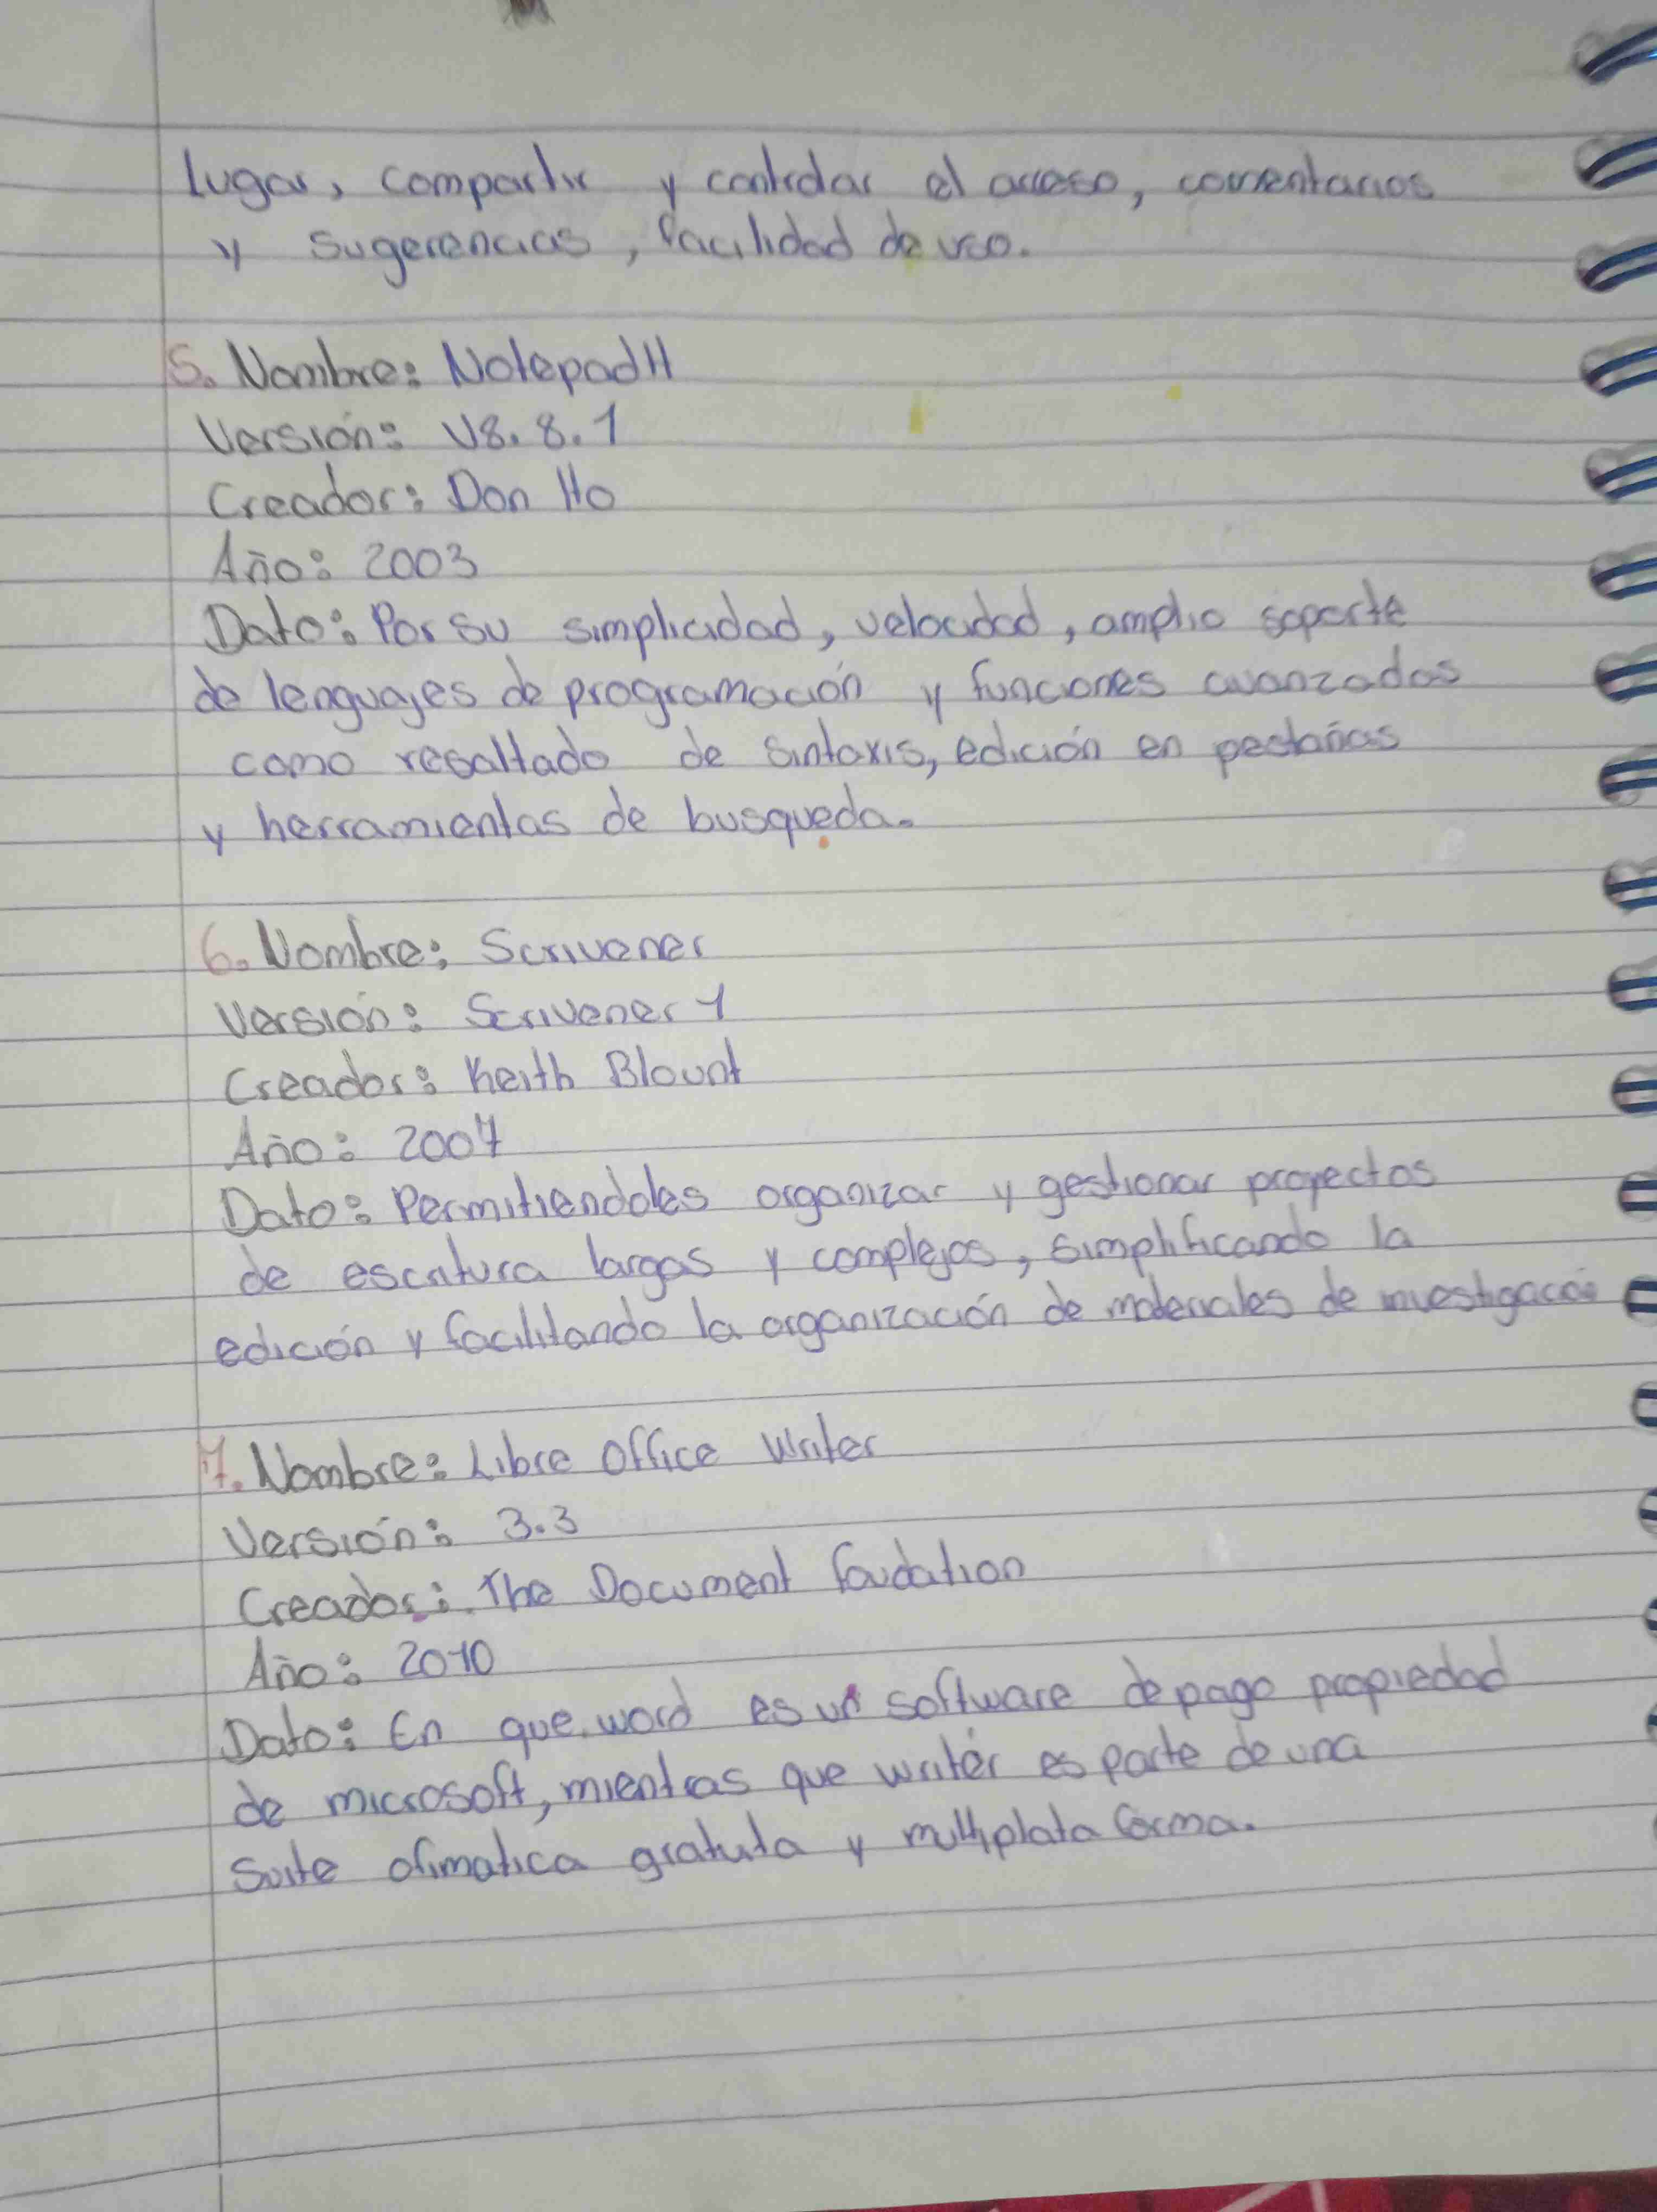 Lugar, compartir y controlar el acceso, comentarios
y sugerencias, facilidad de uso.
5. Nombre: Notepad++
Versión: V8.8.1
Creador: Don Ho
Año: 2003
Dato: Por su simplicidad, velocidad, amplio soporte
de lenguajes de programación y funciones avanzadas
como resaltado de sintaxis, edición en pestañas
y herramientas de busqueda.
6. Nombre: Scrivener
Versión: Scrivener 1
Creador: Keith Blount
Año: 2007
Dato: Permitiendoles organizar y gestionar proyectos
de escritura largos y complejos, simplificando la
edición y facilitando la organización de materiales de investigación
7. Nombre: Libre Office Writer
Versión: 3.3
Creador: The Document foudation
Año: 2010
Dato: En que word es un software de pago propiedad
de microsoft, mientras que writer es parte de una
suite ofimatica gratuita y multiplataforma.